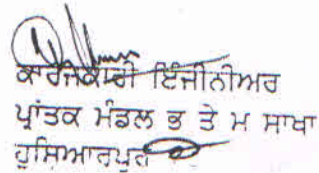 ਕਾਰਜਕਾਰੀ ਇੰਜੀਨੀਅਰ
ਪ੍ਰਾਂਤਕ ਮੰਡਲ ਭ ਤੇ ਮ ਸਾਖਾ
ਹੁਸ਼ਿਆਰਪੁਰ